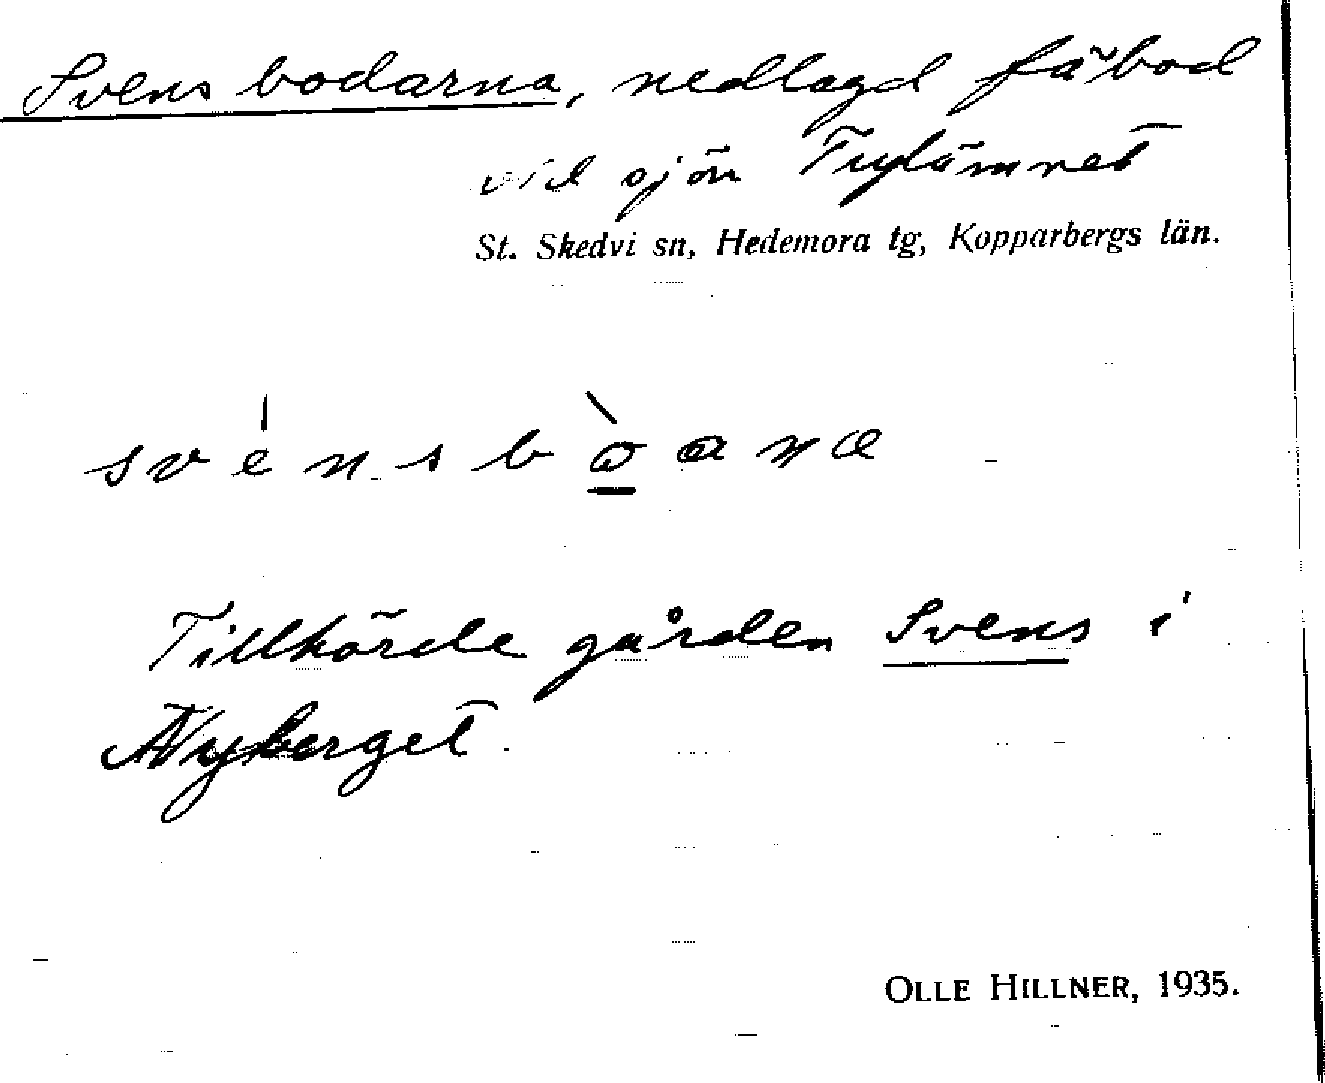 Svensbodarna, nedlagd fäbod
vid sjön
St. Skedvi sn, Hedemora tg, Kopparbergs län.
Tillhörde gården Svens i
Nyberget.
OLLE HILLNER, 1935.